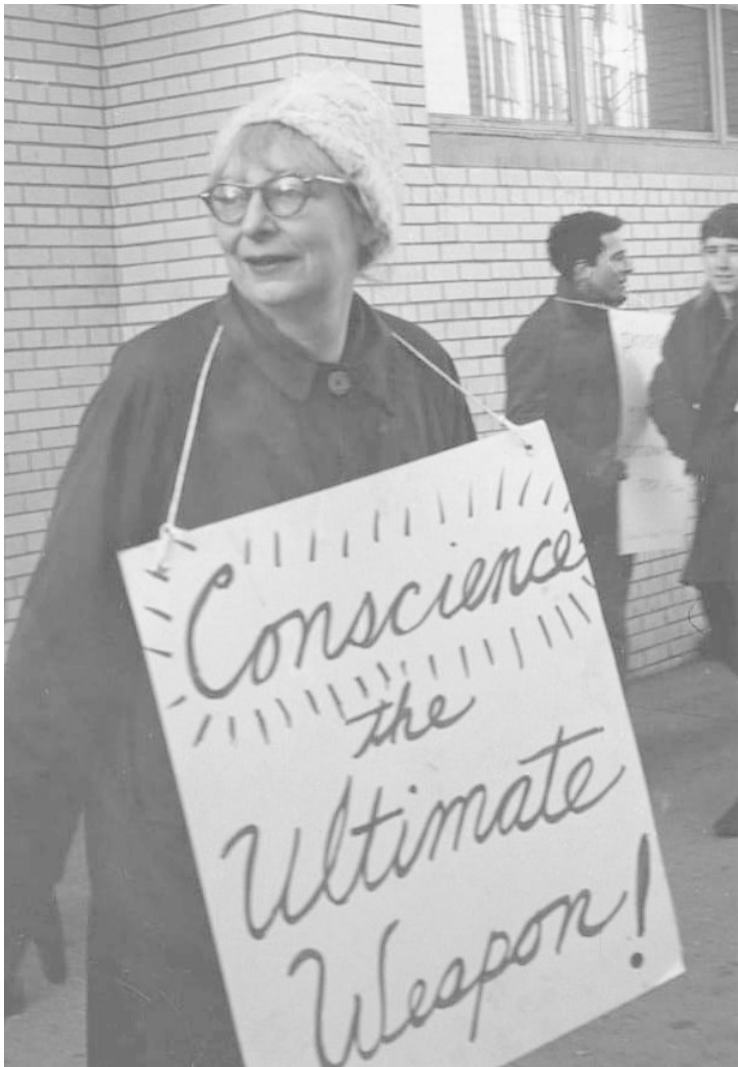 Conscience
the
Ultimate
Weapon!